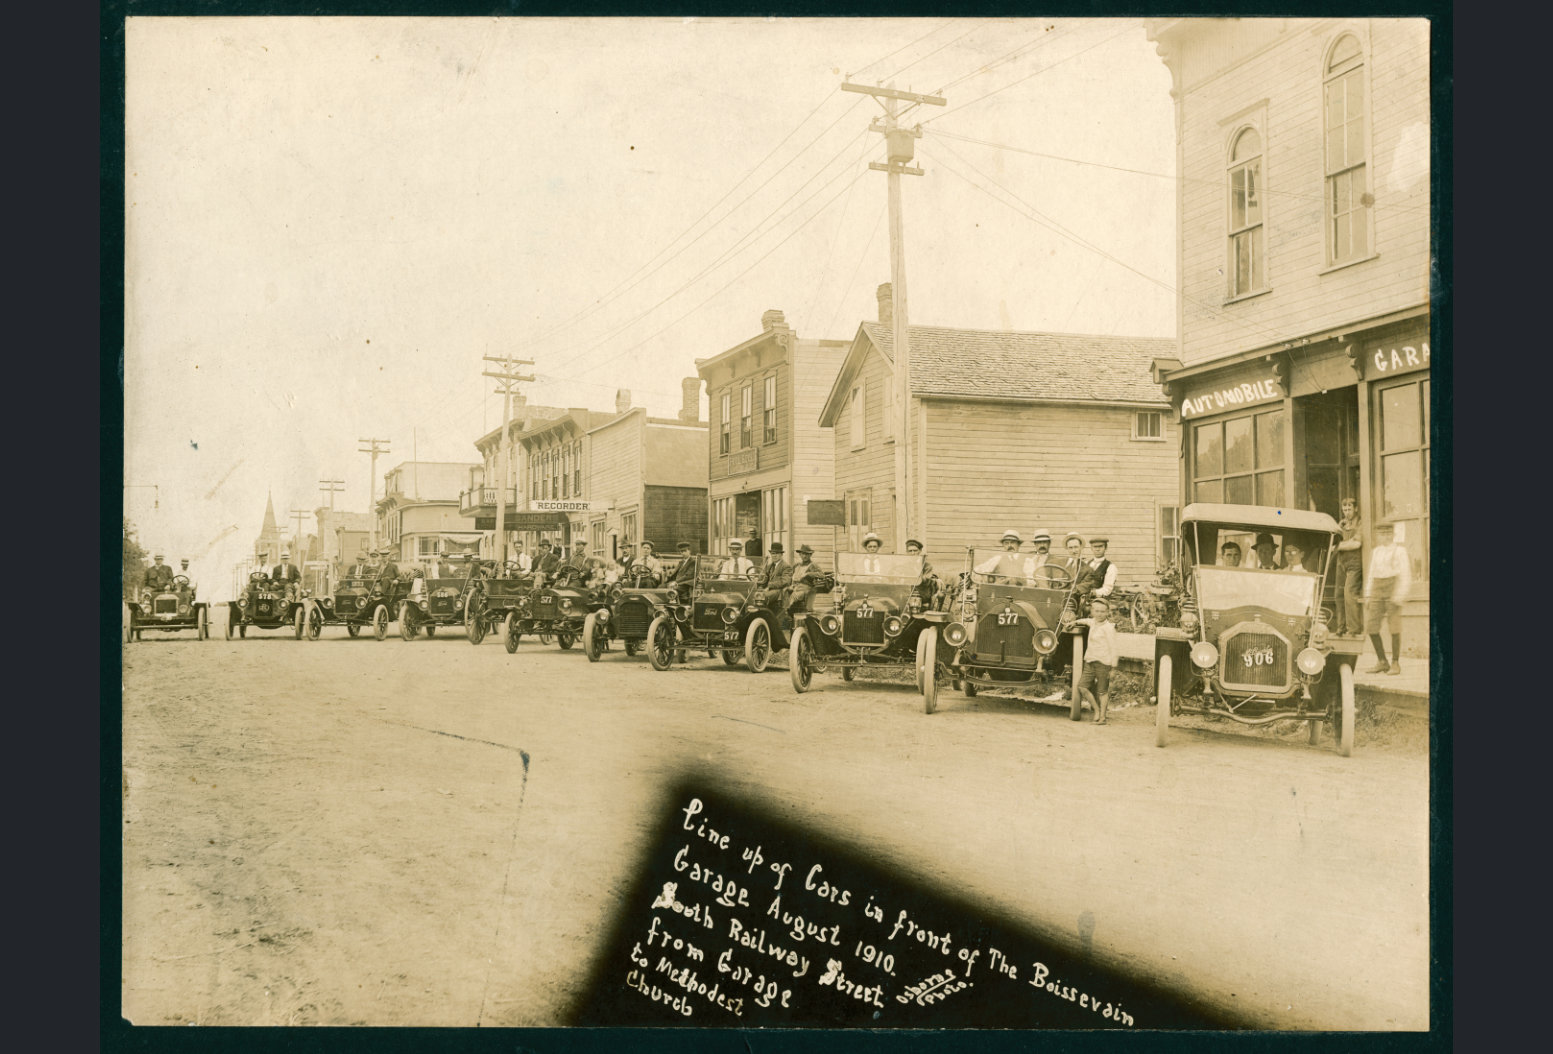 AUTOMOBILE
GARA
RECORDER
577
577
577
906
Ford
Line up of Cars in front of The Boissevain
Garage August 1910.
South Railway Street
from Garage
to Methodest
Church
Osborne
Photo.